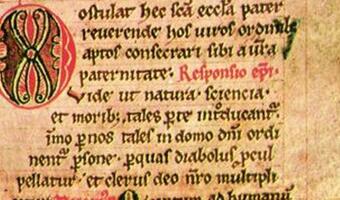 ostulat hec scā eccła pater
reverende hos viros ordinib;
aptos consecrari sibi a ura
paternitate. Responsio epī.
Vide ut natura sciencia
et morib; tales p te introducant.
īmo p nos tales in domo dnī ordi
nent p sone. p quas diabolus pcul
pellatur et clerus deo nrō multipli
ad humanū